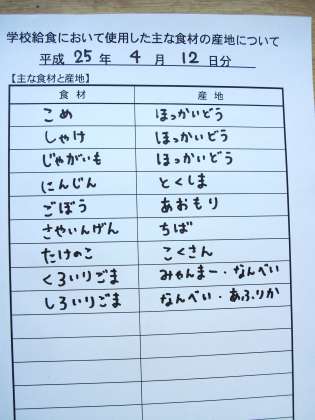 学校給食において使用した主な食材の産地について
平成 25 年 4 月 12 日分
【主な食材と産地】
食材 産地
こめ ほっかいどう
しゃけ ほっかいどう
じゃがいも ほっかいどう
にんじん とくしま
ごぼう あおもり
さやいんげん ちば
たけのこ こくさん
くろいりごま みゃんまー・なんべい
しろいりごま なんべい・あふりか